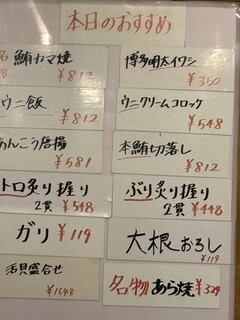 本日のおすすめ
名物 鮪カマ焼
¥812
博多明太イワシ
¥350
ウニ飯
¥812
ウニクリームコロッケ
¥548
あんこう唐揚
¥581
本鮪切落し
¥812
トロ炙り握り
2貫 ¥548
ぶり炙り握り
2貫 ¥448
ガリ ¥119
大根おろし
¥119
活貝盛合せ
¥1648
名物 あら焼 ¥329